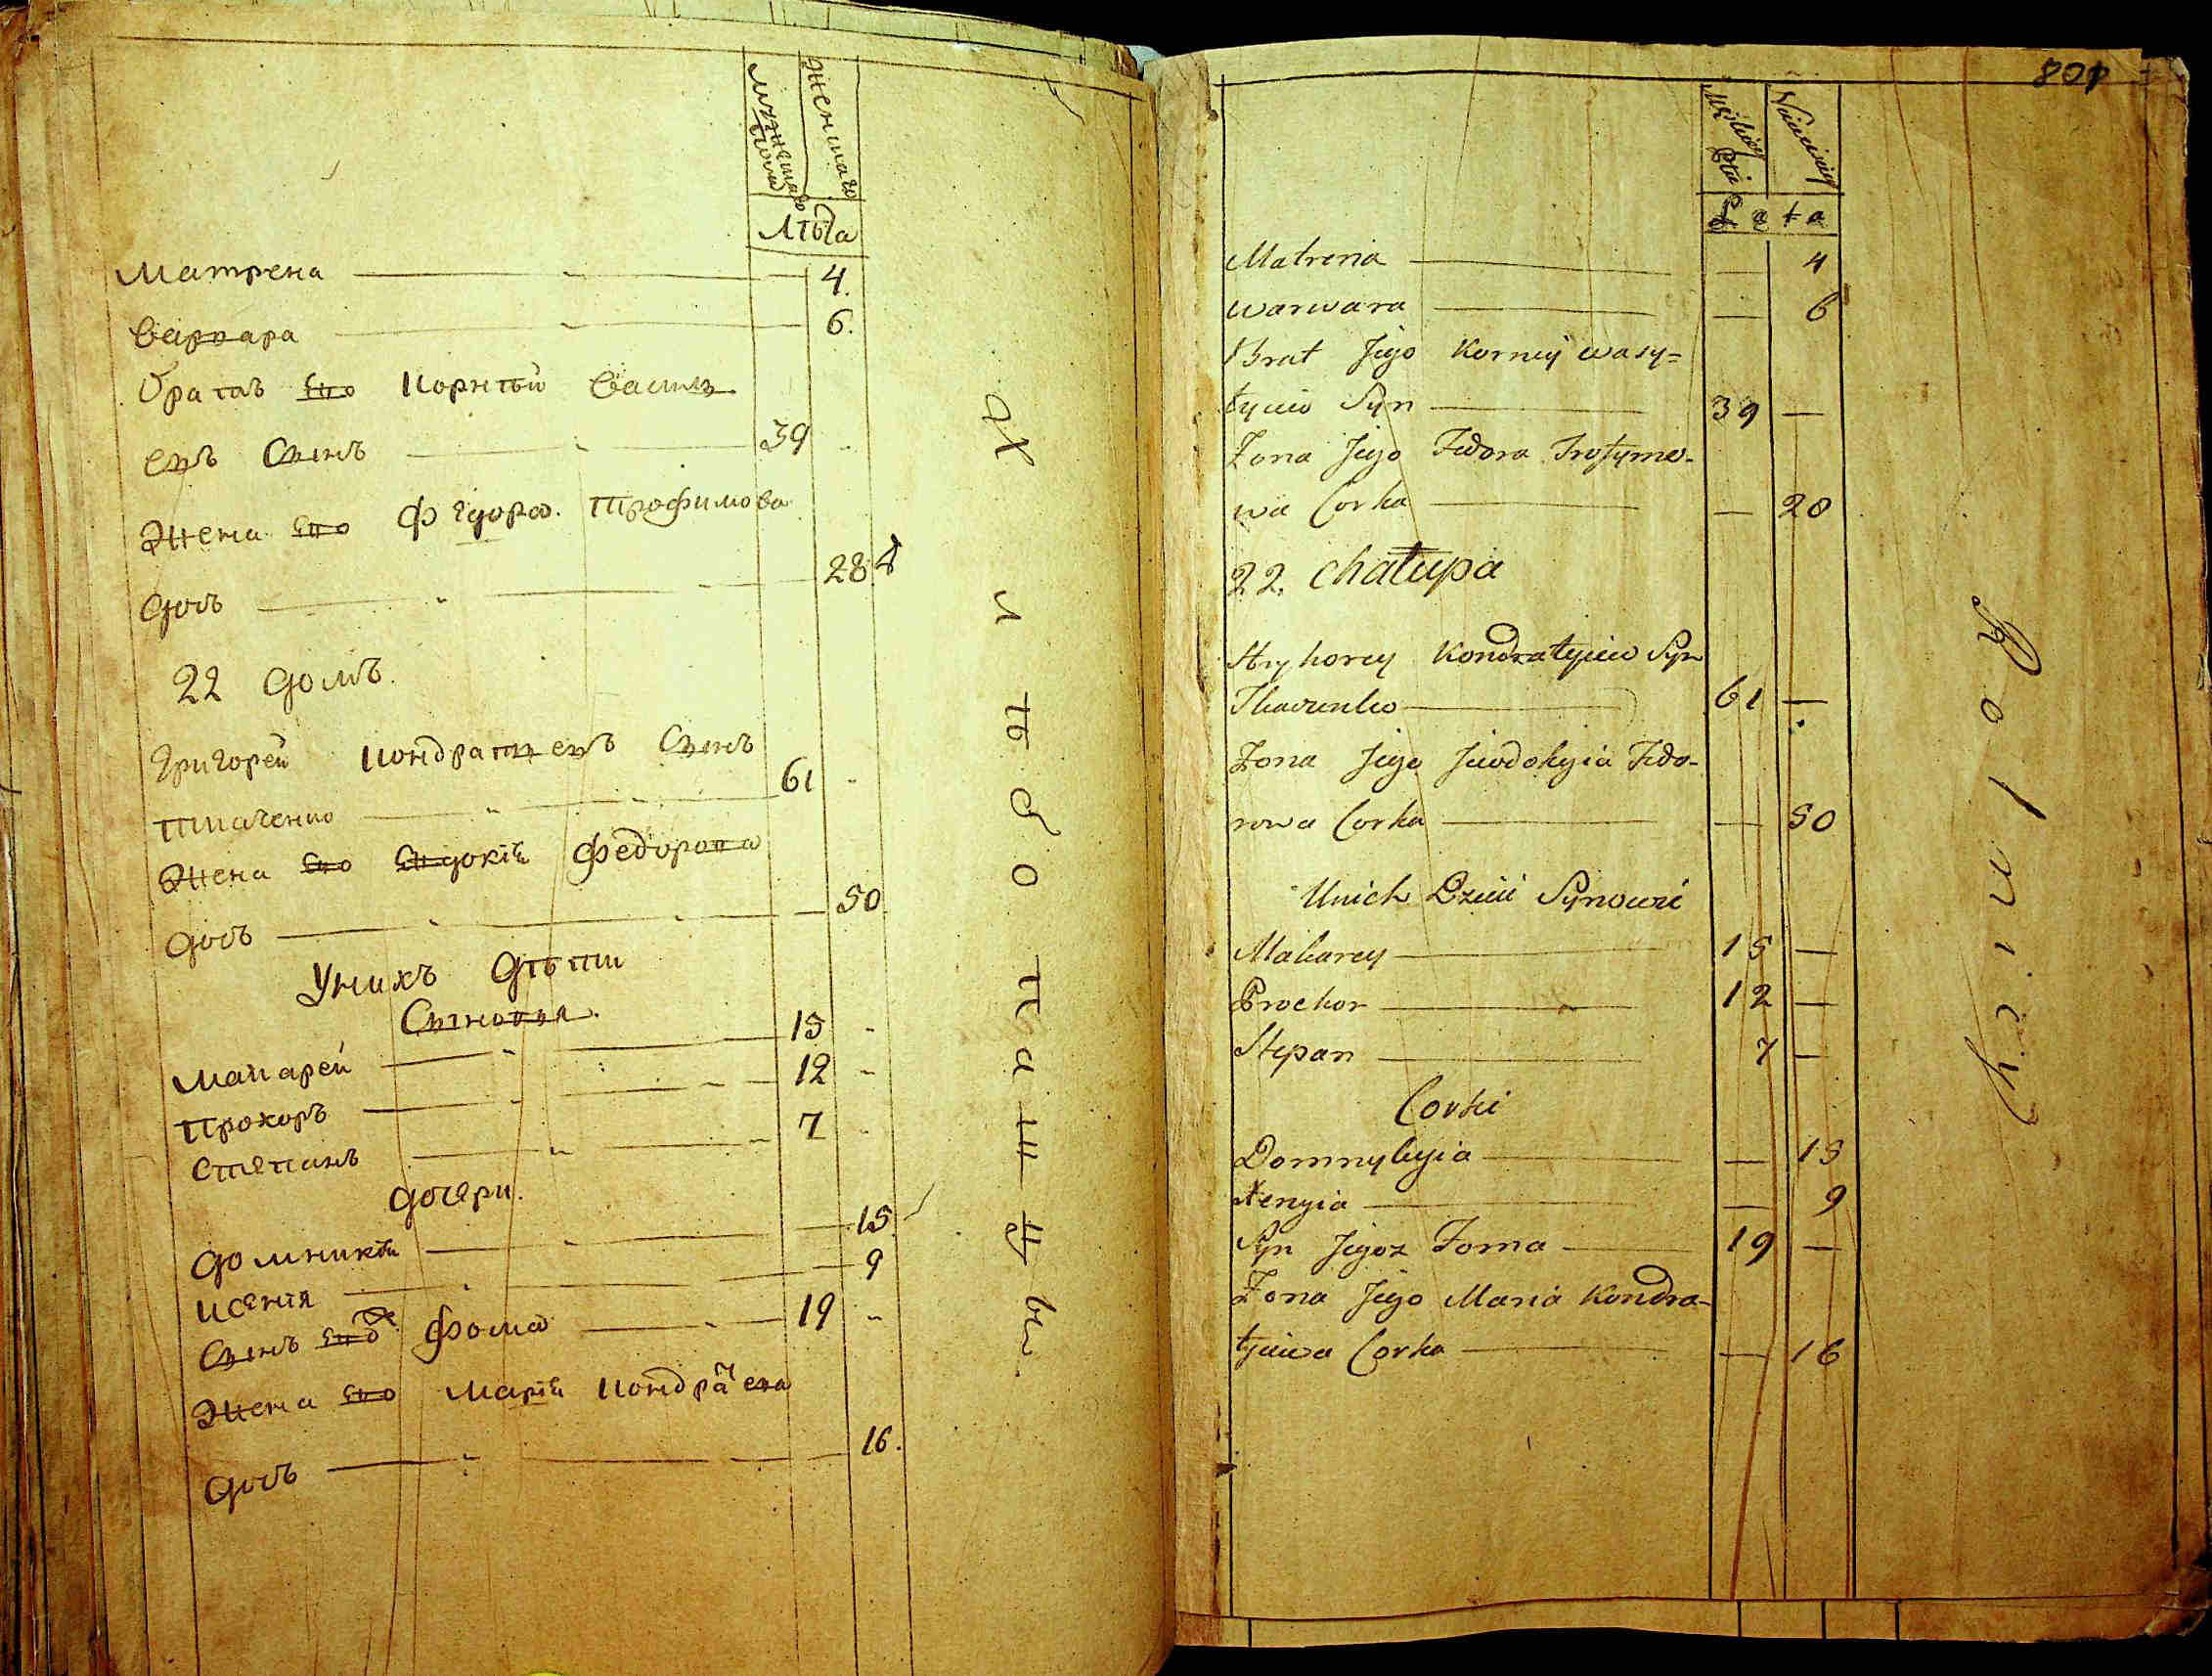 мужескаго пола
женскаго
лѣта
Матрена — 4.
Варвара — 6.
Братъ Его Корнѣй Василь
евъ Сынъ — 39
Жена Его Федора Трофимова
дочь — 28
22 домъ.
Григорей Кондратьевъ Сынъ
Ткаченко — 61
Жена Его Евдокія Федорова
дочь — 50
У нихъ дѣти
Сыновья.
Макарей — 15
Прохоръ — 12
Степанъ — 7
дочери.
Домникія — 15
Ксенія — 9
Сынъ Егожъ Фома — 19
Жена Его Марія Кондратева
дочь — 16.
Хлѣбопашцы
801
Męskiey Płci
Niewieściey
Lata
Matrena — — 4
Warwara — — 6
Brat Jego Korniy Wasy=
lyiew Syn — 39 —
Żona Jego Fedora Trofymo-
wa Corka — — 28
22. Chałupa
Hryhorey Kondratyiew Syn
Tkaczenko — 61 —
Żona Jego Jewdokyia Fedo-
rowa Corka — — 50
U nich Dzieci Synowie
Makarey — 15 —
Prochor — 12 —
Stepan — 7 —
Corki
Domnykyia — — 15
Xenyia — — 9
Syn Jegoz Foma — 19 —
Żona Jego Maria Kondra-
tyiewa Corka — — 16
Rolnicy